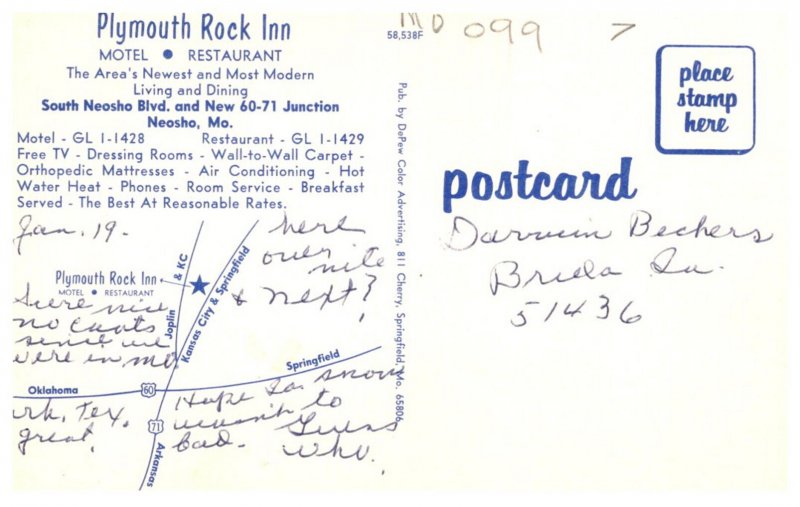 Plymouth Rock Inn
MOTEL ● RESTAURANT
The Area's Newest and Most Modern
Living and Dining
South Neosho Blvd. and New 60-71 Junction
Neosho, Mo.
Motel - GL 1-1428 Restaurant - GL 1-1429
Free TV - Dressing Rooms - Wall-to-Wall Carpet -
Orthopedic Mattresses - Air Conditioning - Hot
Water Heat - Phones - Room Service - Breakfast
Served - The Best At Reasonable Rates.
Jan. 19.
here
over
nite
& next?
Plymouth Rock Inn
MOTEL ● RESTAURANT
Joplin & KC
Kansas City & Springfield
nice
no coats
since we
were in Mo.
Springfield
Oklahoma
60
71
Arkansas
ark, Tex.
great.
Hope Ia. snow
wasn't to
bad.
Guess
who.
58,538F
Pub. by DePew Color Advertising, 811 Cherry, Springfield, Mo. 65806
MO 099 7
place
stamp
here
postcard
Darwin Beckers
Breda Ia.
51436